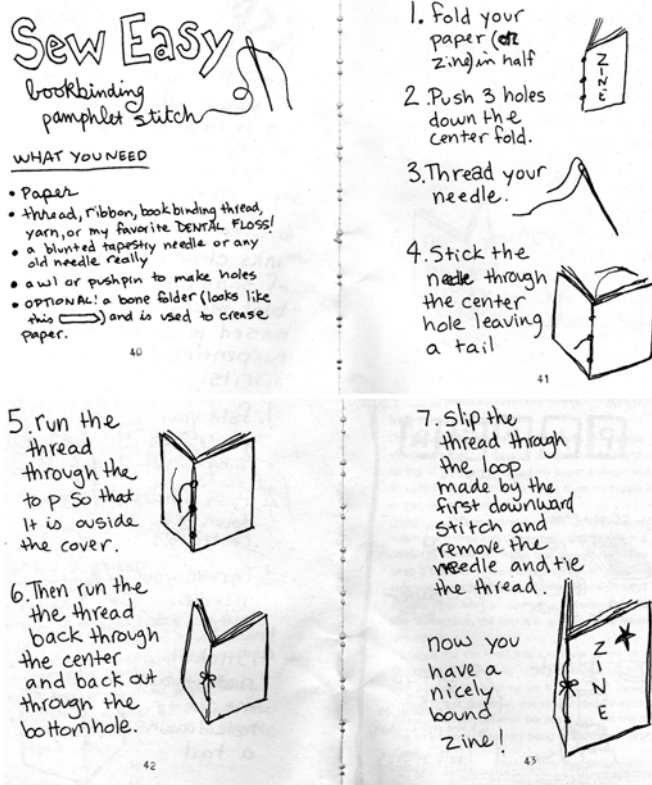 Sew Easy
bookbinding
pamphlet stitch
WHAT YOU NEED
• Paper
• thread, ribbon, bookbinding thread,
yarn, or my favorite DENTAL FLOSS!
• a blunted tapestry needle or any
old needle really
• awl or pushpin to make holes
• OPTIONAL! a bone folder (looks like
this ) and is used to crease
paper.
40
1. fold your
paper (or
zine) in half
ZINE
2. Push 3 holes
down the
center fold.
3. Thread your
needle.
4. Stick the
needle through
the center
hole leaving
a tail
41
5. run the
thread
through the
to p so that
it is ouside
the cover.
6. Then run the
the thread
back through
the center
and back out
through the
bottom hole.
42
7. Slip the
thread through
the loop
made by the
first downward
stitch and
remove the
needle and tie
the thread.
now you
have a
nicely
bound
zine!
ZINE
43